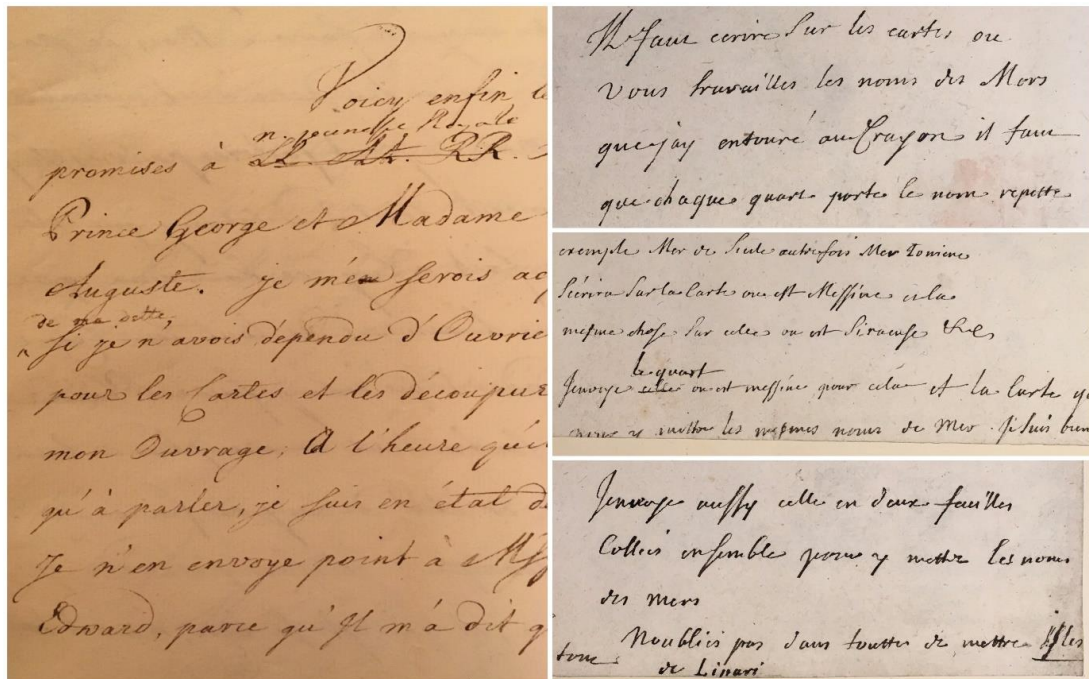 Voicy enfin le
n. jeunesse Royale
promises à LL. AA. RR.
Prince George et Madame
Auguste. je m'en serois ac
de ma dette,
si je n'avois dépendu d'Ouvrie
pour les Cartes et les découpure
mon Ouvrage; A l'heure qu'i
qu'à parler, je suis en état d
Je n'en envoye point à
Edward, parce qu'Il m'a dit q
Il faut ecrire Sur les cartes ou
vous travailles les noms des Mers
que jay entouré au Crayon il faut
que chaque quart porte le nom repette
exemple Mer de Sicile autrefois Mer Ioniene
Sécrira Sur la Carte ou est Messine cela
mesme chose Sur celle ou est Siracuse
le quart
Jenvoye celle ou est messine pour cela et la Carte
pour y mettre les mesmes noms de Mer. je Suis bien
Jenvoye aussy celle en deux feuilles
Colleis ensemble pour y mettre les noms
des mers
Noublies pas dans touttes de mettre Isles
de Lipari